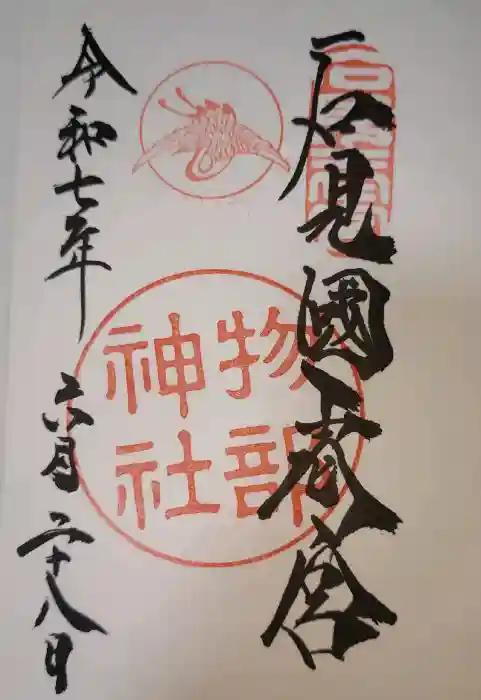 石見國一宮
物部
神社
令和七年
六月二十八日